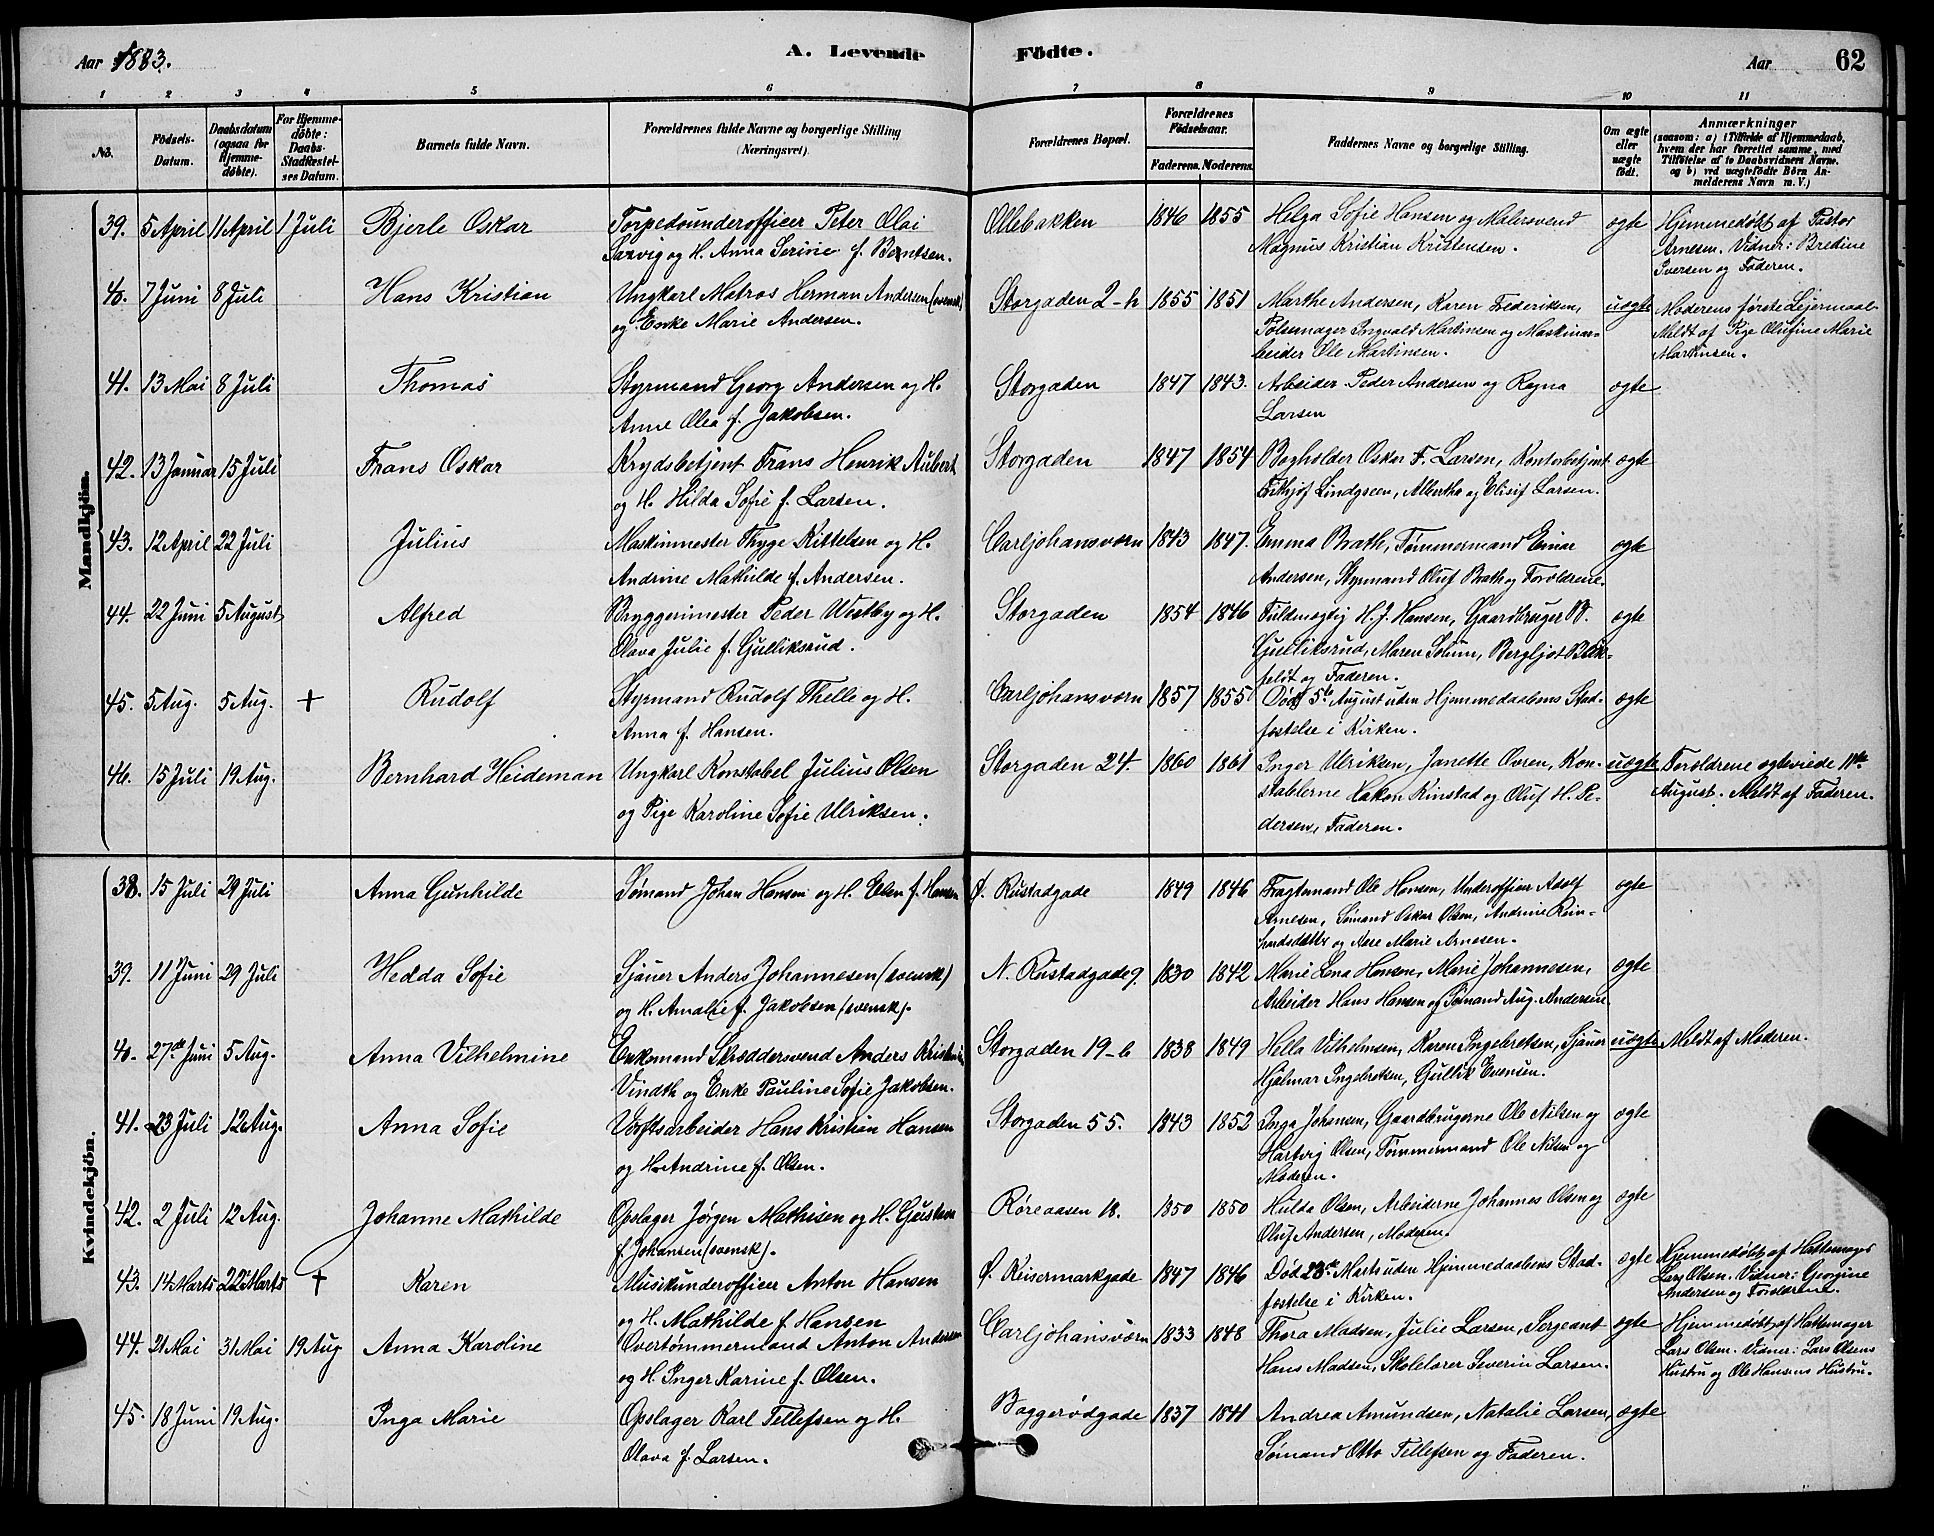 Aar 1883. A. Levende Födte. Aar 62
1 2 3 4 5 6 7 8 9 10 11
No. Födsels-Datum. Daabsdatum (ogsaa for Hjemmedöbte). For Hjemmedöbte: Daabs-Stadfæstelses Datum. Barnets fulde Navn. Forældrenes fulde Navne og borgerlige Stilling (Næringsvei). Forældrenes Bopæl. Forældrenes Födselsaar. Faderens. Moderens. Faddernes Navne og borgerlige Stilling. Om ægte eller uægte födt. Anmærkninger (saasom: a) i Tilfælde af Hjemmedaab, hvem der har forrettet samme, med Tilföielse af to Daabsvidners Navne, og b) ved uægtefödte Börn Anmelderens Navn m. V.)
Mandkjön.
39. 5 April 11 April 1 Juli Bjerle Oskar Torpedounderofficer Peter Olai Ollebakken 1846 1855 Helga Sofie Hansen og Malersvend ægte Hjemmedøbt af Pastor
og H. Anna Serine f. Berntsen. Magnus Kristian Kristensen. Arnesen. Vidner: Bredine
Iversen og Faderen.
40. 7 Juni 8 Juli Hans Kristian Ungkarl Matros Herman Andersen (svensk) Storgaden 2-h 1855 1851 Marthe Andersen, Karen Frederiksen, uægte Moderens første Leiermaal.
og Enke Marie Andersen. Pølsemager Torgvald Martinsen og Maskinar- Meldt af Pige Olufine Marie
beider Ole Martinsen. Martinsen.
41. 13 Mai 8 Juli Thomas Styrmand Georg Andersen og H. Storgaden 1847 1843. Arbeider Peder Andersen og Ragna ægte
Anne Olea f. Jakobsen. Larsen
42. 13 Januar 15 Juli Frans Oskar Krydsbetjent Frans Henrik Aubert Storgaden 1847 1854 Bogholder Oskar F. Larsen, Kontorbetjent ægte
og H. Hilda Sofie f. Larsen. Frithjof Lindgreen, Albertha og Elisif Larsen.
43. 12 April 22 Juli Julius Maskinmester Thyge Kittelsen og H. Carljohansværn 1843 1847. Emma Brath, Tømmermand Einar ægte
Andrine Mathilde f. Andersen. Andersen, Styrmand Oluf Brath og Forældrene.
44. 22 Juni 5 August Alfred Bryggerimester Peder Westby og H. Storgaden 1854 1846 Fuldmægtig H. J. Hansen, Gaardbruger B. ægte
Olava Julie f. Gulliksrud. Gulliksrud, Maren Solum, Bergljot Blik-
feldt og Faderen.
45. 5 Aug. 5 Aug. + Rudolf Styrmand Rudolf Thelle og H. Carljohansværn 1857 1855 Død 5te August uden Hjemmedaabens Stad- ægte
Anna f. Hansen. fæstelse i Kirken.
46. 15 Juli 19 Aug. Bernhard Heideman Ungkarl Konstabel Julius Olsen Storgaden 24. 1860 1861 Inger Ulriksen, Janette Evren, Kon- uægte Forældrene ægteviede 11te
og Pige Karoline Sofie Ulriksen. stablerne Hakon Rinstad og Oluf H. Pe- August. Meldt af Faderen.
dersen, Faderen.
Kvindekjön.
38. 15 Juli 29 Juli Anna Gunhilde Sømand Johan Hansen og H. Ellen f. Hansen Ø. Rustadgade 1849 1846 Fragtemand Ole Hansen, Underofficer Adolf ægte
Arnesen, Sømand Oskar Olsen, Andrine Rein-
hardsdatter og Aase Marie Arnesen.
39. 11 Juni 29 Juli Hedda Sofie Sjauer Anders Johannesen (svensk) N. Rustadgade 9. 1830 1842 Marie Lena Hansen, Marie Johannesen, ægte
og H. Amalie f. Jakobsen (svensk). Arbeider Hans Hansen og Sømand Aug. Andersen.
40. 27de Juni 5 Aug. Anna Vilhelmine Enkemand Skræddersvend Anders Kristian Storgaden 19-b 1838 1849 Hella Vilhelmsen, Karen Ingebretsen, Sjauer uægte Meldt af Moderen.
Vindth og Enke Pauline Sofie Jakobsen. Hjalmar Ingebretsen, Gullik Evensen.
41. 23 Juli 12 Aug. Anna Sofie Værftsarbeider Hans Kristian Hansen Storgaden 55. 1843 1852 Inga Johansen, Gaardbrugerne Ole Nilsen og ægte
og H. Andrine f. Olsen. Hartvig Olsen, Tømmermand Ole Nilsen og
Moderen.
42. 2 Juli 12 Aug. Johanne Mathilde Opslager Jørgen Mathisen og H. Gustava Røreaasen 18. 1850 1850 Hulda Olsen, Arbeiderne Johannes Olsen og ægte
f. Johansen (svensk). Oluf Andersen, Moderen.
43. 14 Marts 22 Marts + Karen Musikunderofficer Anton Hansen Ø. Keisermarkgade 1847 1846 Død 23de Marts uden Hjemmedaabens Stad- ægte Hjemmedøbt af Hattemager
og H. Mathilde f. Hansen fæstelse i Kirken. Lars Olsen. Vidner: Georgine
Andersen og Forældrene.
44. 21 Mai 31 Mai 19 Aug Anna Karoline Overtømmermand Anton Andersen Carljohansværn 1833 1848 Thora Madsen, Julie Larsen, Sergeant ægte Hjemmedøbt af Hattemager
og H. Inger Karine f. Olsen. Hans Madsen, Skolelærer Severin Larsen. Lars Olsen. Vidner: Lars Olsens
Hustru og Ole Hansens Hustru.
45. 18 Juni 19 Aug. Inga Marie Opslager Karl Tellefsen og H. Baggerødgade 1837 1841 Andrea Amundsen, Natalie Larsen, ægte
Olava f. Larsen. Sømand Otto Tellefsen og Faderen.